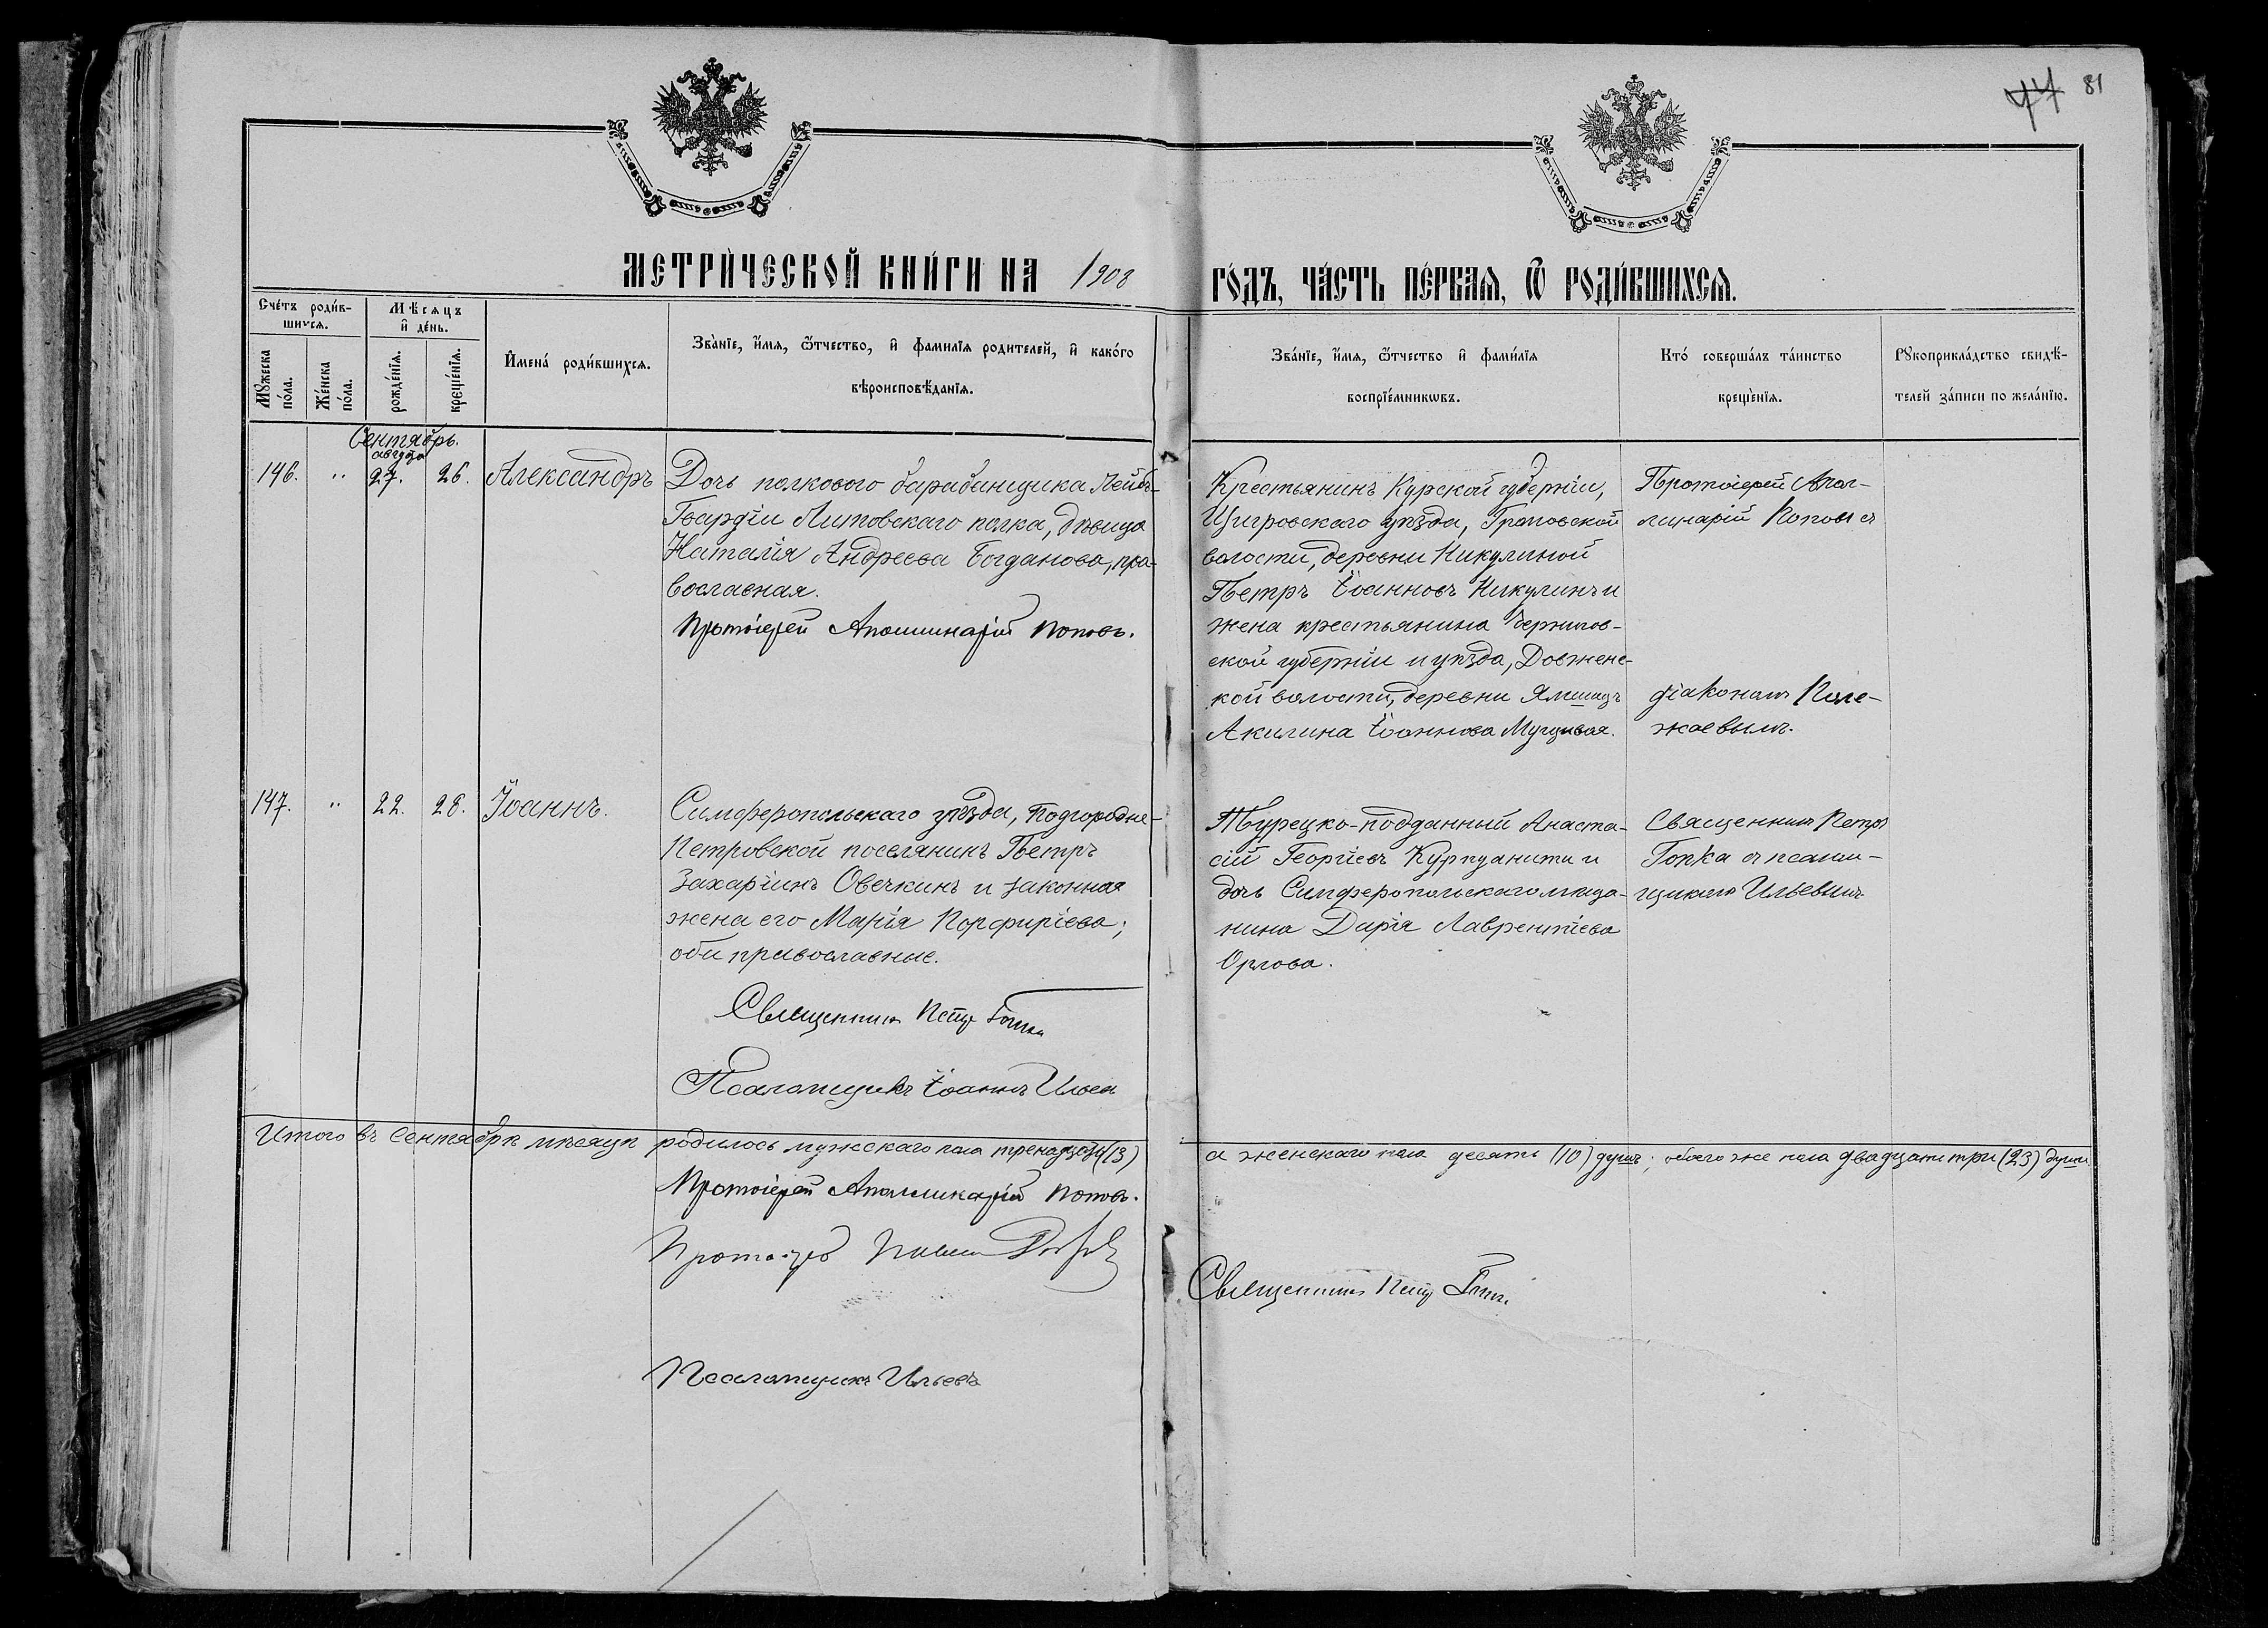 77 81
МЕТРИ́ЧЕСКОЙ КНИ́ГИ НА 1908 ГО́ДЪ, ЧА́СТЬ ПЕ́РВАѦ, Ѿ РОДИ́ВШИХСѦ.
Сче́тъ роди́в-
шихсѧ.
Мꙋжеска по́ла.
Же́нска по́ла.
Мѣсѧцъ
и҆ де́нь.
рожде́нїѧ.
креще́нїѧ.
И҆мена́ роди́вшихсѧ.
Зва́нїе, и҆́мѧ, ѻ҆́тчество, и҆ фами́лїѧ родителей, и҆ како́го
вѣроисповѣ́данїѧ.
Зва́нїе, и҆́мѧ, ѻ҆́тчество и҆ фами́лїѧ
воспрїе́мникѡвъ.
Кто́ соверша́лъ та́инство
креще́нїѧ.
Рꙋкоприкла́дство свидѣ́-
телей за́писи по жела́нїю.
Сентябрь.
августа
146. " 27. 26. Александръ
Дочь полкового барабанщика Лейбъ-
Гвардіи Литовскаго полка, дѣвица
Наталія Андреева Богданова, пра-
вославная.
Протоіерей Аполлинарій Поповъ.
Крестьянинъ Курской губерніи,
Щигровскаго уѣзда,
волости, деревни Никулиной
Петръ Іоанновъ Никулинъ и
жена крестьянина Чернигов-
ской губерніи и уѣзда, Довженс-
кой волости, деревни
Акилина Іоаннова
Протоіерей Апол-
линарій Поповъ съ
діакономъ Поле-
жаевымъ.
147. " 22. 28. Іоаннъ.
Симферопольскаго уѣзда, Подгородне-
Петровской поселянинъ Петръ
Захаріинъ Овечкинъ и законная
жена его Марія Порфиріева;
оба православные.
Священникъ Петр Гопка
Псаломщикъ Іоаннъ Ильевъ
Турецко-подданный Анаста-
сій Георгіевъ и
дочь Симферопольскаго мѣща-
нина Дарія Лаврентіева
Орлова.
Священникъ Петръ
Гопка съ псалом-
щикомъ Ильевымъ
Итого въ Сентябрѣ мѣсяцѣ родилось мужескаго пола тренадцать (13)
а женскаго пола десять (10) душъ; обоего же пола двадцати три (23) души
Протоіерей Аполлинарій Поповъ.
Протоіерей
Священникъ Петр Гопка
Псаломщикъ Ильевъ